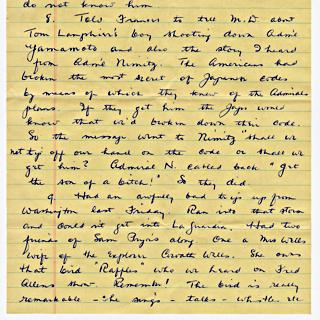 do not know him.
8. Told Frances to tell M.D. about
Tom Lamphier's boy shooting down Adm'l
Yamamoto and also the story I heard
from Adm'l Nimitz. The Americans had
broken the most secret of Japanese codes
by means of which they knew of the Admirals
plans. If they got him the Japs would
know that we'd broken down their code.
So the message went to Nimitz "shall we
not tip off our hand on the code or shall we
get him? Admiral N. cabled back "get
the son of a bitch!" So they did.
9. Had an awfully bad trip up from
Washington last Friday. Ran into that storm
and could not get into LaGuardia. Had two
friends of Sam Pryor's along. One a Mrs Wells
wife of the Explorer Carveth Wells. She owns
that bird "Raffles" who we heard on Fred
Allens show. Remember! The bird is really
remarkable - he sings - talks - whistles etc